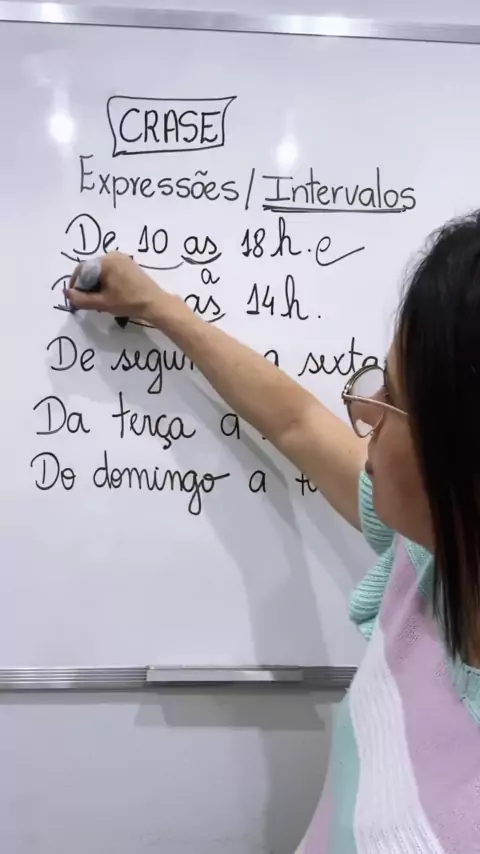 CRASE
Expressões/Intervalos
De 10 as 18h. e
a
as 14h.
De a sexta
Da terça a
Do domingo a